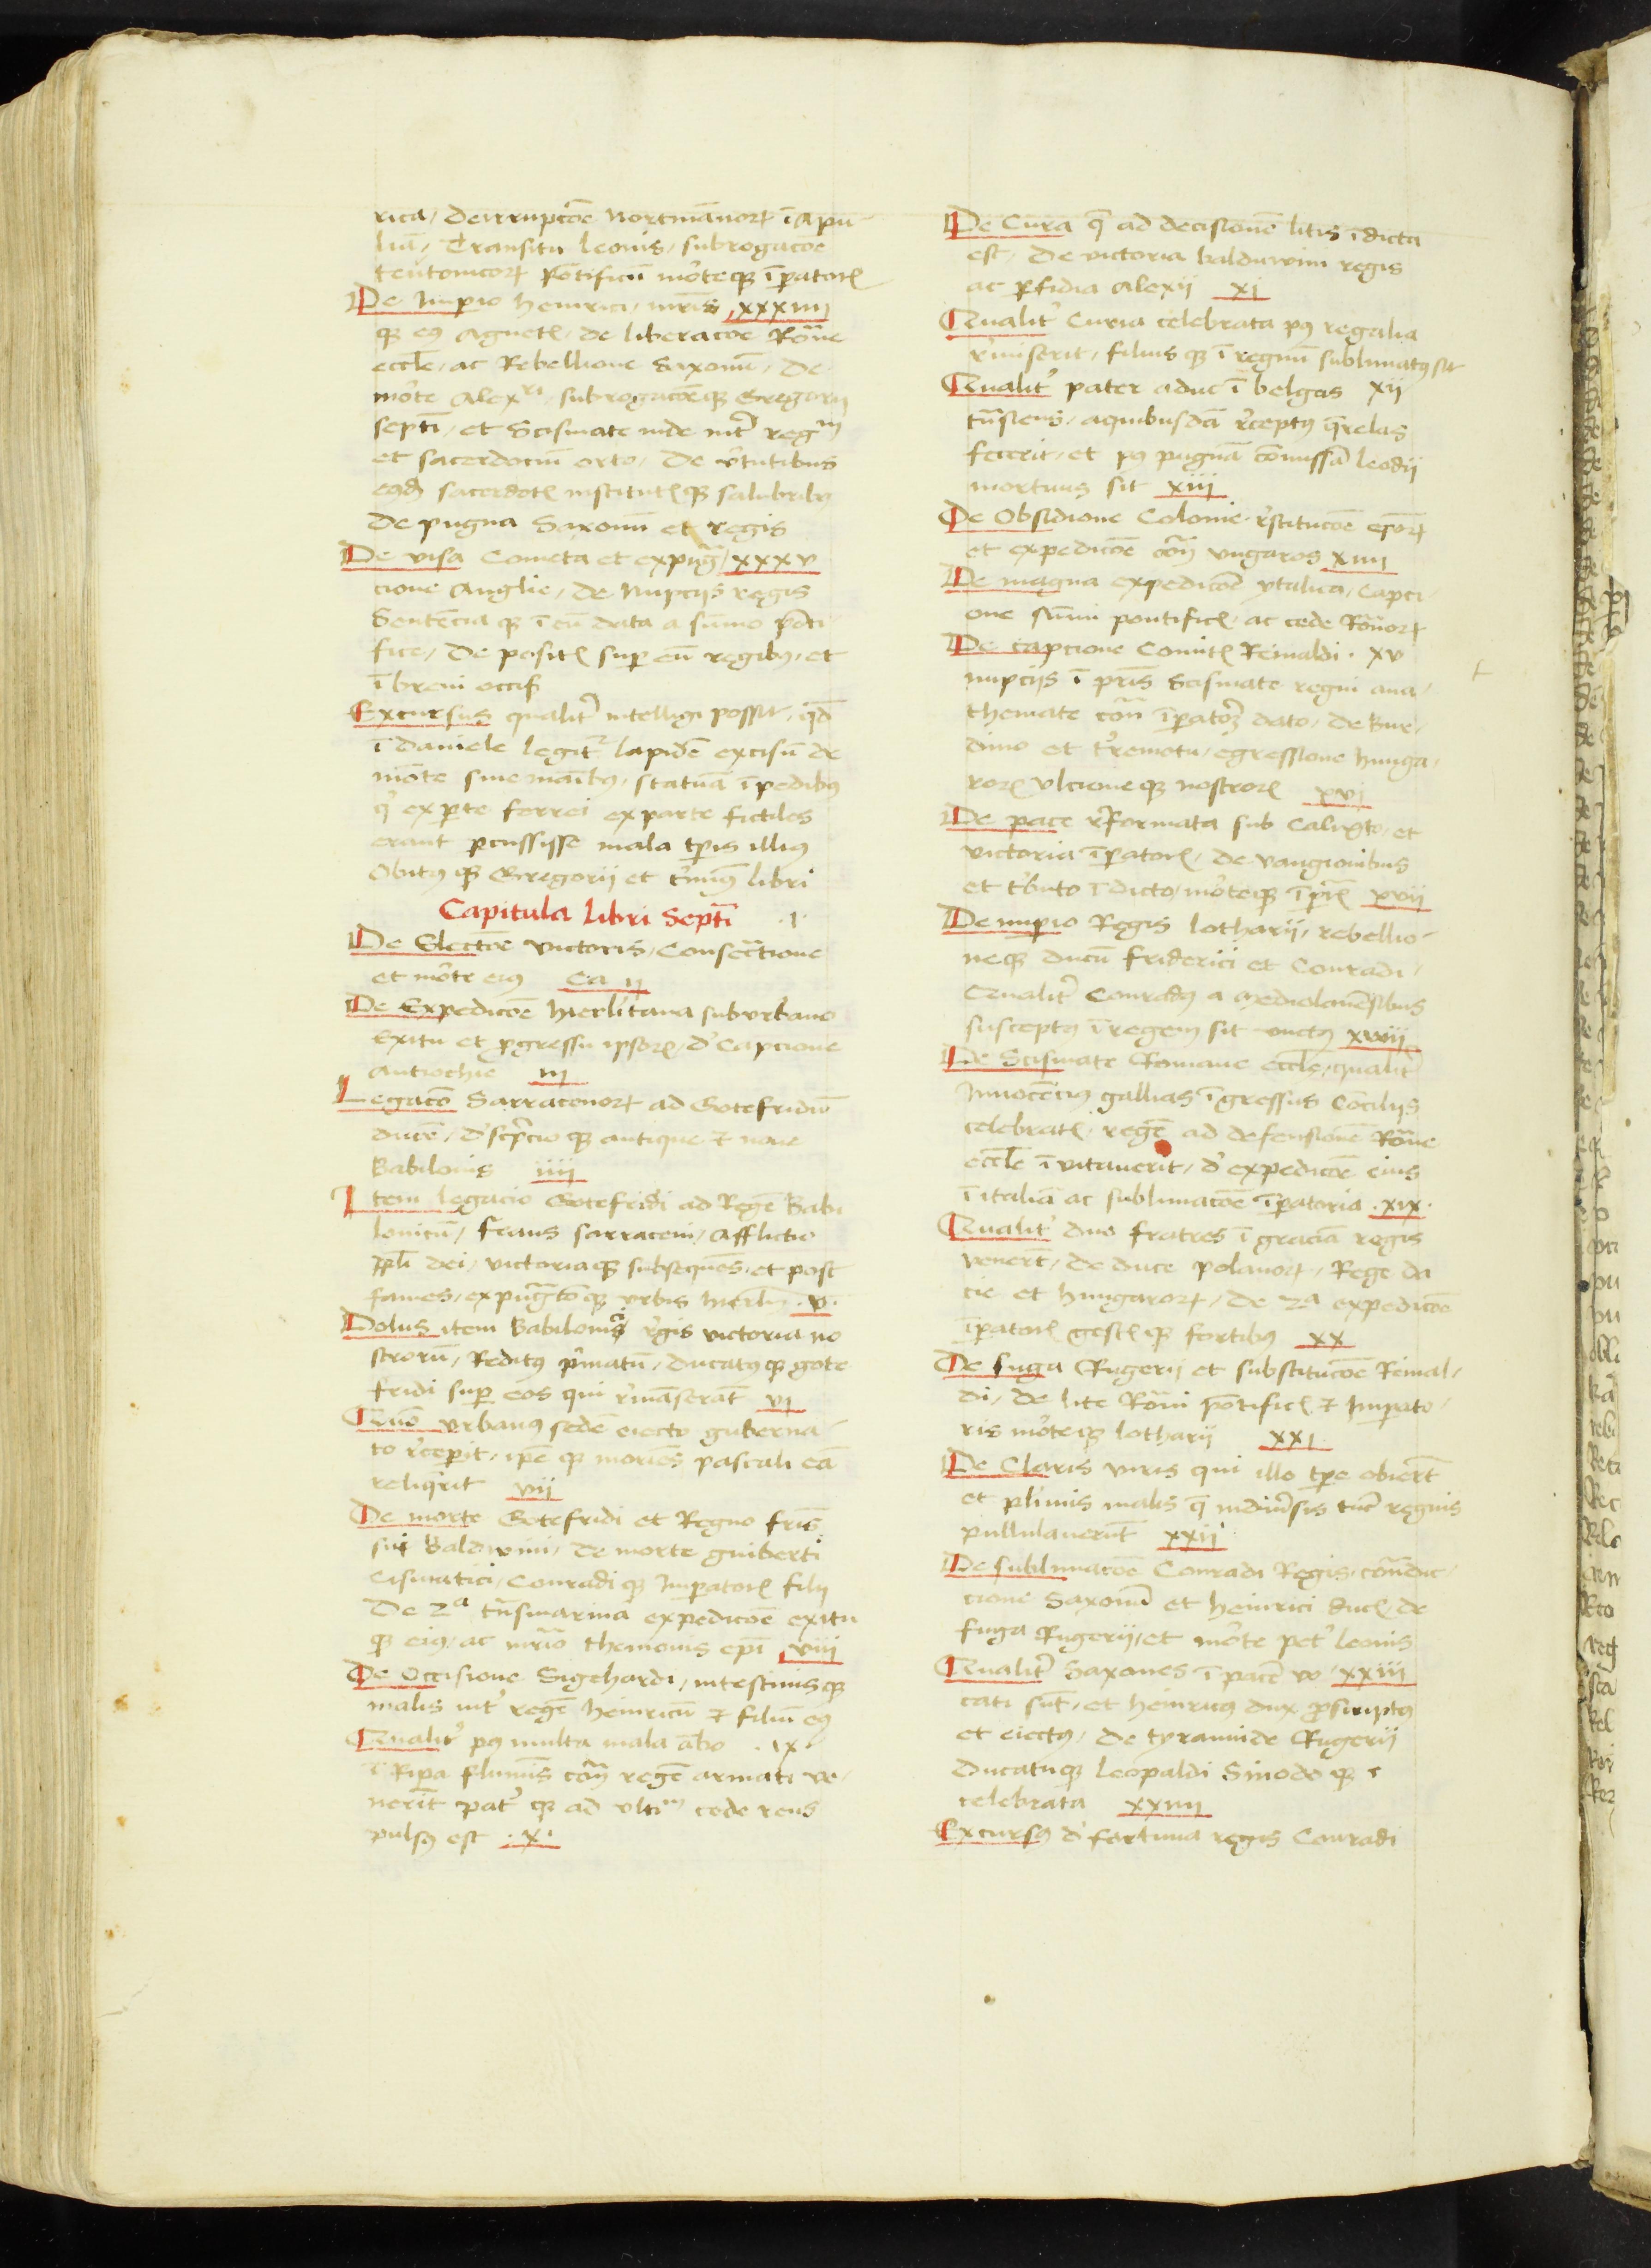 rica / De irruptōe Nortmānorꝝ ī Apu-
liā / Transitu leonis / subrogacōe
teutonicorꝝ Pōtificū morteqꝫ īpatorꝭ
De Impio heinrici / mr̄is / xxxiiii
qꝫ eꝰ Agnetꝭ / de liberacōe Rōne
eccl̄e / ac Rebellione Saxonū / De
mōrte Alexͬⁱ / subrogacōeqꝫ Gregorii
septī / et Scismate inde int̓ regᵐ
et sacerdociū orto / De v̓tutibus
eiꝰdē sacerdotꝭ institutꝭ qꝫ salubribꝰ
De pugna Saxonū et regis
De visa Cometa et expug̃ / xxxv
cione Anglie / De Nupciis regis
Sentēcia qꝫ ī eū data a sūmo pōti
fice / De positꝭ sup eū regibꝰ / et
ī breui occisꝭ
Excursus qualit̓ intelligi possit / qd̄
ī Daniele legit᷑ lapidē excisū de
mōte sine manibꝰ / statuā ī pedibꝰ
q̓ ex parte ferrei ex parte fictiles
erant pcussisse mala tp̄is illiꝰ
Obitꝰ qꝫ Gregorii et t̓minꝰ libri
Capitula libri Septī .i.
De Electōe victoris / Consecratione
et mōrte eiꝰ Ca ii
De Expedicōe hierl̄itana sub vrbano
Exitu et pgressu ipsorꝭ / d̓ Capcione
Antiochie iii
Legacō Sarracenorꝝ ad Gotefridū
ducē / d̓scpcio qꝫ antique ⁊ noue
Babilonis iiii
Item legacio Gotefridi ad Regē Babi
lonicū / fraus sarraceni / Afflictio
pp̄li dei / victoria qꝫ subsequēs / et post
fames / expug̃tō qꝫ vrbis hierl̄m .v.
Dolus item Babilonis r̓gis victoria no
strorū / Reditꝰ p̓matū / ducatꝰ qꝫ gote
fridi sup eos qui r̓māserāt vi
Quō vrbanus sedē eiecto guberna
to r̓cepit / ip̄e qꝫ moriēs pascali eā
reliq̓rit vii
De morte Gotefridi et Regno fr̄is
sui Balduuini / De morte guiberti
Cismatici / Conradi qꝫ Impatorꝭ filii
De 2ᵃ tn̄smarina expedicōe exitu
qꝫ eiꝰ / ac mr̄io themonis ep̄i viii
De Occisione Sigehardi / intestinis qꝫ
malis int̓ regē heinricū ⁊ filiū eiꝰ
Qualit̓ pꝰ multa mala ābo .ix.
ī Ripa fluminis cont̃ regē armati ve-
nerīt pat̓ qꝫ ad vltiᵐ cede reus
pulsꝰ est .x.
De Curia q̄ ad decisionē litis īdicta
est / De victoria balduuini regis
ac pfidia Alexii xi
Qualit̓ Curia celebrata pꝰ regalia
r̓miserit / filius qꝫ ī regnū sublimatꝰ sit
Qualit̓ pater aduc ī belgas xii
tn̄siens / a quibusdā r̓ceptꝰ q̄relas
fecerit / et pꝰ pugnā cōmissā leodii
mortuus sit xiii
De Obsidione Colonie r̓stitucōe ep̄orꝝ
et expedicōe cont̃ vngaros xiiii
De magna expedicōe ytalica / Capci-
one sūmi pontificꝭ / ac cede Rōnorꝝ
De capcione Comitꝭ Reinaldi . xv
nupciis ī pr̄is Scismate regni ana-
themate cont̃ īpatorē dato / de Bur-
dino et t̓remotu / egressione hunga-
rorꝭ vlcione qꝫ nostrorꝭ xvi
De pace r̓formata sub Calixto / et
victoria īpatorꝭ / de vangionibus
et t̓buto īdicto / mōrteqꝫ īpr̄ꝭ xvii
De impio Regis lotharii / rebellio-
neqꝫ ducū friderici et Conradi /
Qualit̓ Conradꝰ a mediolanēsibus
susceptꝰ ī regem sit vnctꝰ xviii
De Scismate Romane eccl̄e / qualit̓
Innocēciꝰ gallias īgressus Cōciliis
celebratꝭ / regē ad defensionē Rōne
eccl̄e īuitauerit / d̓ expedicōe eius
ī italiā ac sublimacōe īpatoria .xix.
Qualit̓ duo fratres ī graciā regis
venerīt / De duce polanorꝝ / Rege da
cie et hungarorꝝ / de 2ᵃ expedicōe
īpatorꝭ gestꝭ qꝫ fortibꝰ xx
De fuga Rugerii et substitucōe Reinal-
di / de lite Rōni pōtificꝭ ⁊ Impato-
ris mōrteqꝫ lotharii xxi
De Claris viris qui illo tp̄e obierīt
et pl̓imis malis q̄ in diu̓sis tūc regnis
pullulauerūt xxii
De sublimacōe Conradi Regis / cont̃dic-
cione Saxonū et heinrici ducꝭ / de
fuga Rugerii / et mōrte pet̓ leonis
Qualit̓ Saxones ī pacē vo / xxiii
cati sūt / et heinricꝰ dux pscriptꝰ
et eiectꝰ / De tyrannide Rugerii
Ducatuqꝫ leopaldi Sinodo qꝫ r
celebrata xxiiii
Excursꝰ d̓ fortuna regis Conradi